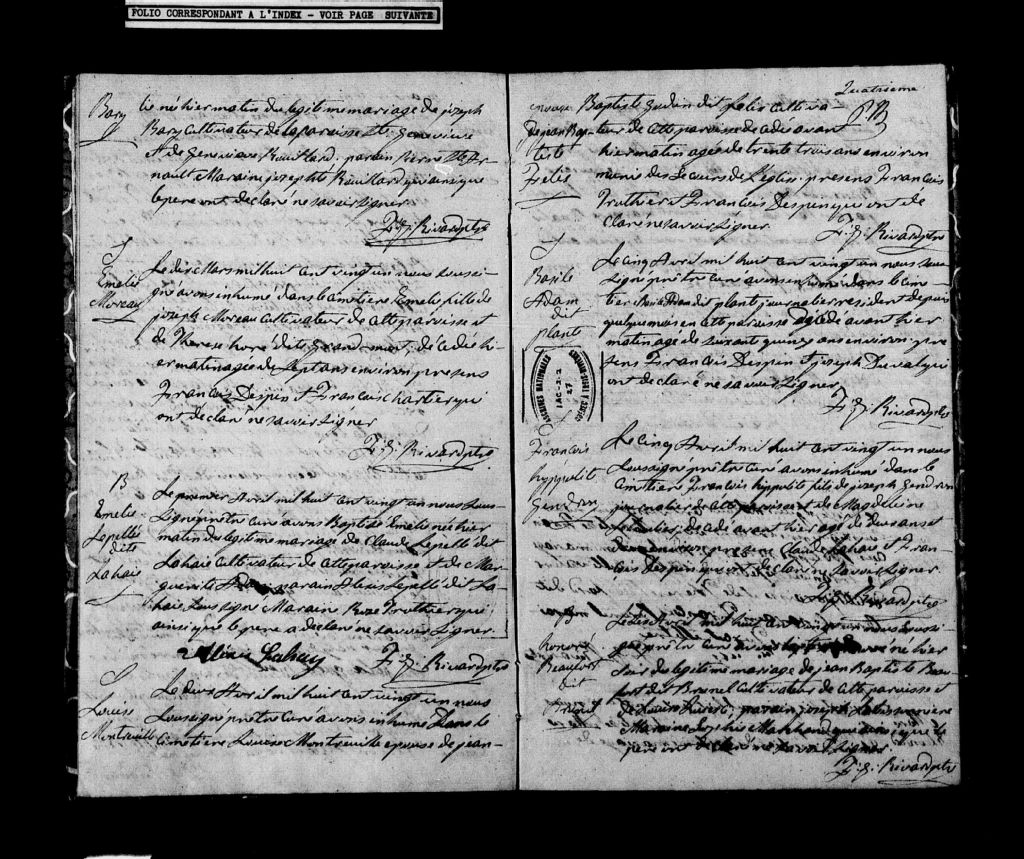 FOLIO CORRESPONDANT A L'INDEX - VOIR PAGE SUIVANTE
Bary
tie né hier matin du legitime mariage de joseph
Bary Cultivateur de la paroisse Ste. Genevieve
et de Genevieve Rouillard. parain Pierre
nault Maraine josephte Rouillard qui ainsi que
le pere ont declaré ne savoir signer
F. X. Rivard ptre
S
Emelie
Moreau
Le dix Mars mil huit cent vingt un nous sousi
gné avons inhumé dans le cimetiere Emelie fille de
joseph Moreau Cultivateur de cette paroisse et
de Therese horé dite Grand-mont, décédée hi
er matin agée de Sept ans environ presens
François Despin et François Chartier qui
ont declaré ne savoir signer
F. X. Rivard ptre
B
Emelie
Lepellé
dite
Lahaie
Le premier Avril mil huit cent vingt un nous Sous
Signé prêtre curé avons Baptisé Emelie née hier
matin du legitime mariage de Claude Lepellé dit
Lahaie Cultivateur de cette paroisse et de Mar
guerite parain Alexis Lepellé dit La
haie Soussigné Maraine Roze Truttier qui
ainsi que le pere a declaré ne savoir signer
Alexis Lahay F. X. Rivard ptre
S
Louise
Montreuille
Le deux Avril mil huit cent vingt un nous
Soussigné prêtre Curé avons inhumé dans le
Cimetiere Louise Montreuille epouse de jean-
Quatrieme
epouse
de jean Bap
tiste
Fretis
Baptiste dit Felix Cultiva
teur de cette paroisse decedé avant
hier matin agée de trente trois ans environ
munie des Secours de l'eglise. presens François
Truttier et François Despin qui ont dé
claré ne savoir signer
F. X. Rivard ptre
S
Basile
Adam
dit
plante
Le cinq Avril mil huit cent vingt un nous sous
Signé prêtre curé avons inhumé dans le Cime
tiere Basile Adam dit plante journalier resident depuis
quelque mois en cette paroisse décédé avant hier
matin agé de soixante quinze ans environ pre
sens François Despin et joseph Duval qui
ont declaré ne savoir signer
F. X. Rivard ptre
ARCHIVES NATIONALES
François
hyppolit
Gendron
Le Cinq Avril mil huit cent vingt un nous
Soussigné prêtre curé avons inhumé dans le
Cimetiere François hippolite fils de joseph Gendron
journalier de cette paroisse et de Magdeleine
decedé avant hier agé de deux ans et
environ presens Claude Lahaie et Fran
çois Despin qui ont declaré ne savoir signer
F. X. Rivard ptre
Honoré
Beaufort
dit
Brunel
Avril mil huit cent vingt un nous sousi
gné prêtre curé avons baptisé né hier
Soir du legitime mariage de jean Baptiste Beau
fort dit Brunel Cultivateur de cette paroisse et
de Louise Rivard. parain joseph
Maraine Sophie Marchand qui ainsi que le
pere ont declaré ne savoir signer
F. X. Rivard ptre